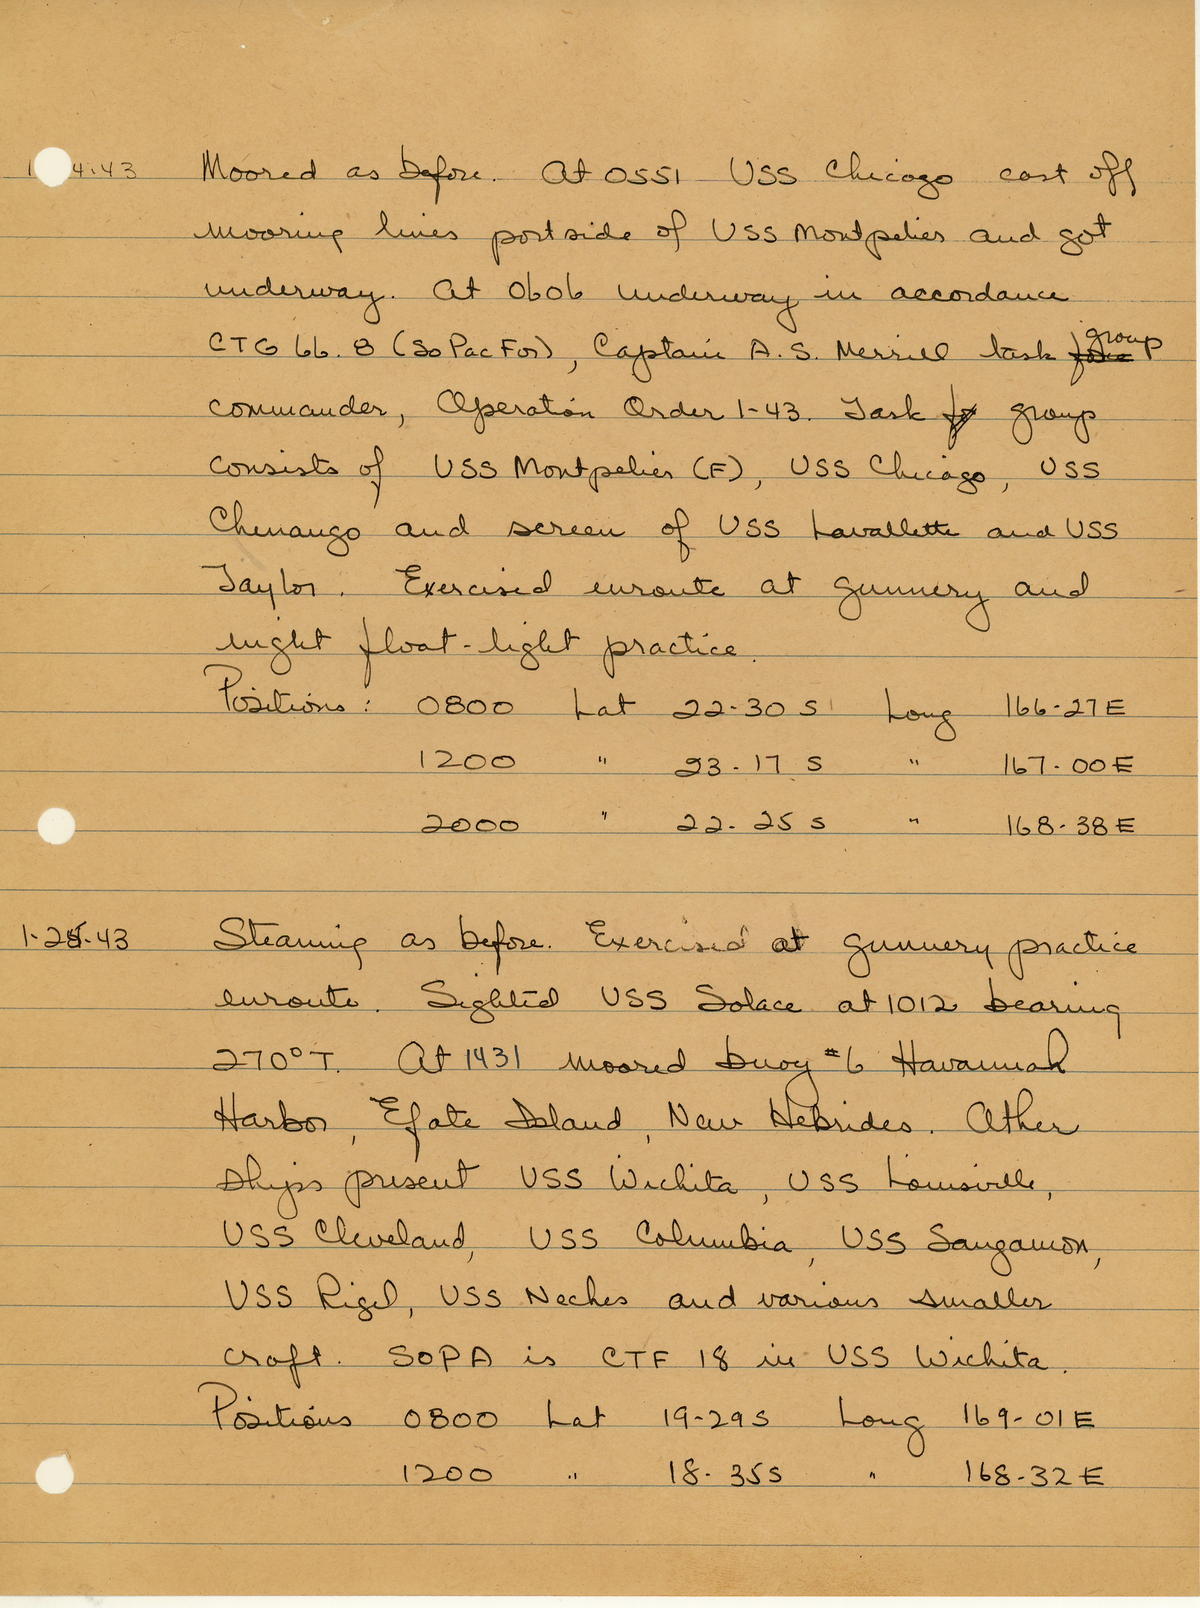 1 4·43 Moored as before. At 0551 USS Chicago cast off
mooring lines portside of USS Montpelier and got
underway. At 0606 underway in accordance
CTG 66.8 (SoPacFor), Captain A.S. Merrill task force group
commander, Operation Order 1-43. Task group
consists of USS Montpelier (F), USS Chicago, USS
Chenango and screen of USS Lavallette and USS
Taylor. Exercised enroute at gunnery and
night float-light practice.
Positions: 0800 Lat 22-30 S Long 166-27E
1200 " 23-17 S " 167-00E
2000 " 22-25 S " 168-38E
1-25-43 Steaming as before. Exercised at gunnery practice
enroute. Sighted USS Solace at 1012 bearing
270°T. At 1431 moored buoy #6 Havannah
Harbor, Efate Island, New Hebrides. Other
ships present USS Wichita, USS Louisville,
USS Cleveland, USS Columbia, USS Sangamon,
USS Rigel, USS Neches and various smaller
craft. SOPA is CTF 18 in USS Wichita.
Positions 0800 Lat 19-29S Long 169-01E
1200 " 18-35S " 168-32E